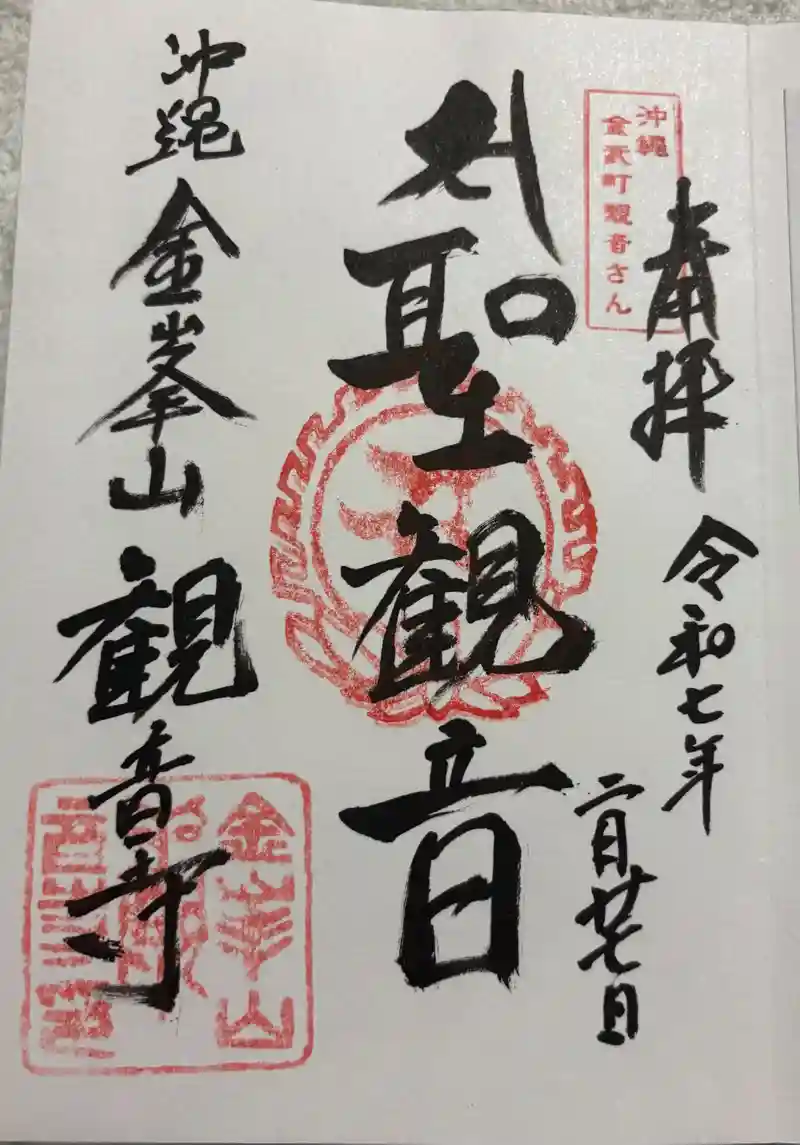 奉拝
沖縄
金武町観音さん
令和七年
二月廿七日
聖観音
沖縄 金峯山 観音寺
金峯山